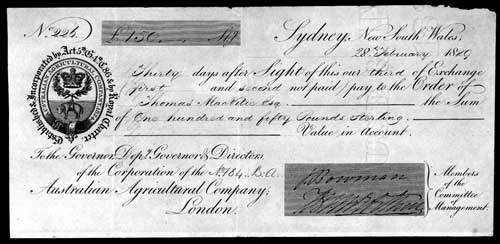 No. 226. £ 150 Stg
Sydney, New South Wales,
28 February 1829
Established & Incorporated by Act 5th G. 4th C. 86 & by Royal Charter.
AUSTRALIAN AGRICULTURAL COMPANY
Thirty days after Sight of this our third of Exchange
first and second not paid / pay to the Order of
Thomas Macvitie Esq. the Sum
of One hundred and fifty Pounds Sterling.
Value in Account.
To the Governor, Depy. Governor & Directors
of the Corporation of the No. 184
Australian Agricultural Company;
London.
Bowman
Members
of the
Committee
of
Management.